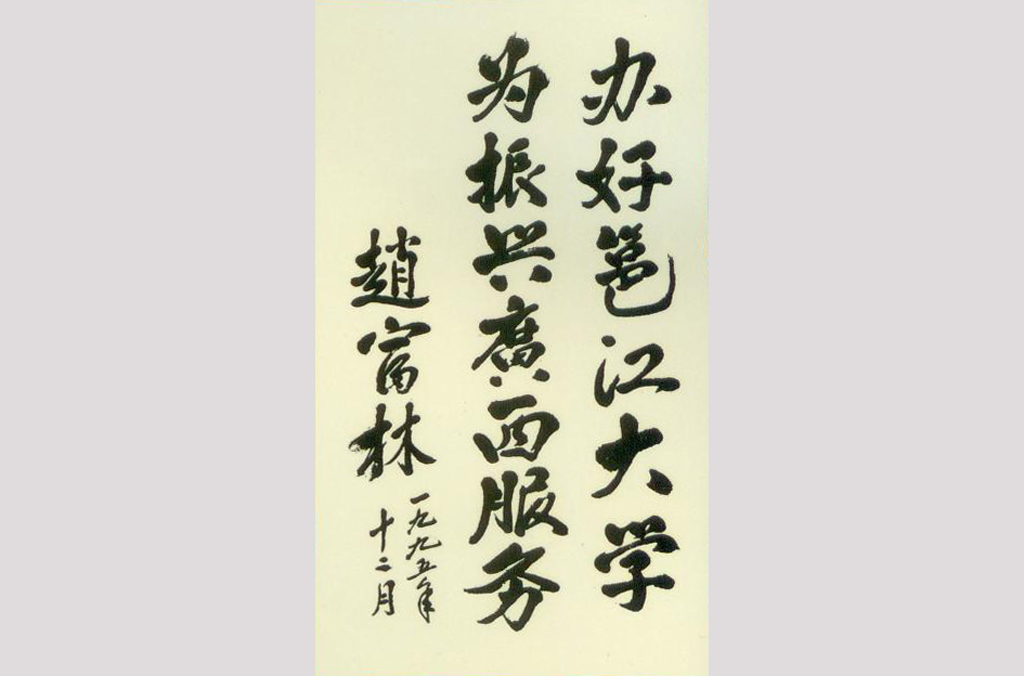 办好邕江大学
为振兴廣西服务
趙富林
一九九五年
十二月